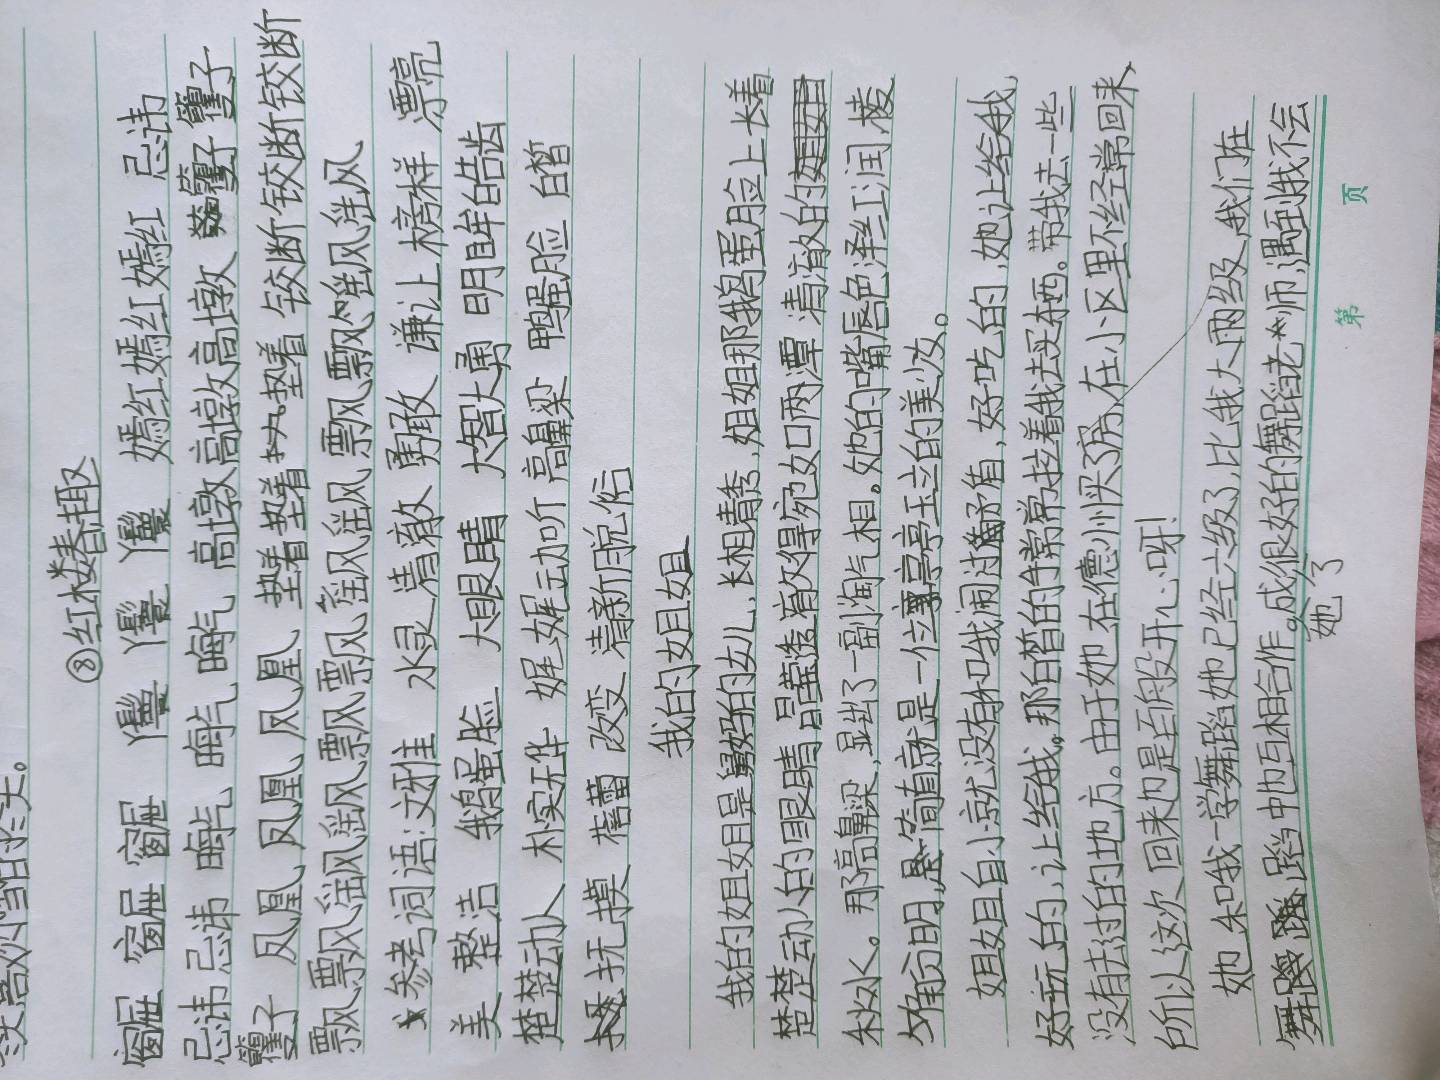 ⑧红楼春趣
窟 窟 窟 嫣红嫣红嫣红 忌讳
忌讳忌讳 晦气 晦气 晦气 高墩高墩高墩 籰子籰子
籰子 凤凰凤凰凤凰 垫着垫着 垫着 铰断铰断铰断
飘飘飖飖飘飘飖飖飘飘飖飖
参考词语:文雅 水灵 清澈 勇敢 谦让 榜样 漂亮
美 整洁 鹅蛋脸 大眼睛 大智大勇 明眸皓齿
楚楚动人 朴实无华 娓娓动听 高鼻梁 鸭蛋脸 白皙
抚摸 蓓蕾 改变 清新脱俗
我的姐姐
我的姐姐是舅妈的女儿,长相清秀,姐姐那鹅蛋脸上长着
楚楚动人的眼睛,晶莹透澈得宛如两潭清澈的
秋水。那高鼻梁,显出了一副淘气相。她的嘴唇色泽红润,棱
角分明,简直就是一位亭亭玉立的美少女。
姐姐自小就没有和我闹过矛盾,好吃的,她让给我,
好玩的,让给我。那白皙的手常常拉着我去买东西。带我去一些
没有去过的地方。由于她在德州买了房,在小区里不经常回来,
所以这次回来也是百般开心呀!
她和我一学舞蹈她已经六级了,比我大两级,我们在
舞蹈中也互相合作。成很好的舞蹈老师,遇到我不会
她 了
第 页